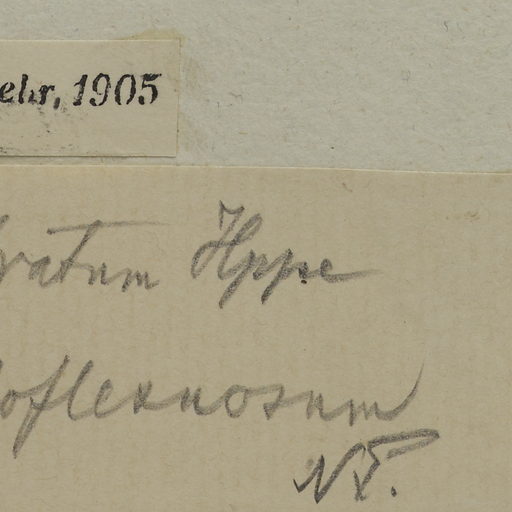 ehr, 1905
ratum Hppe
oflexuosum
NT.